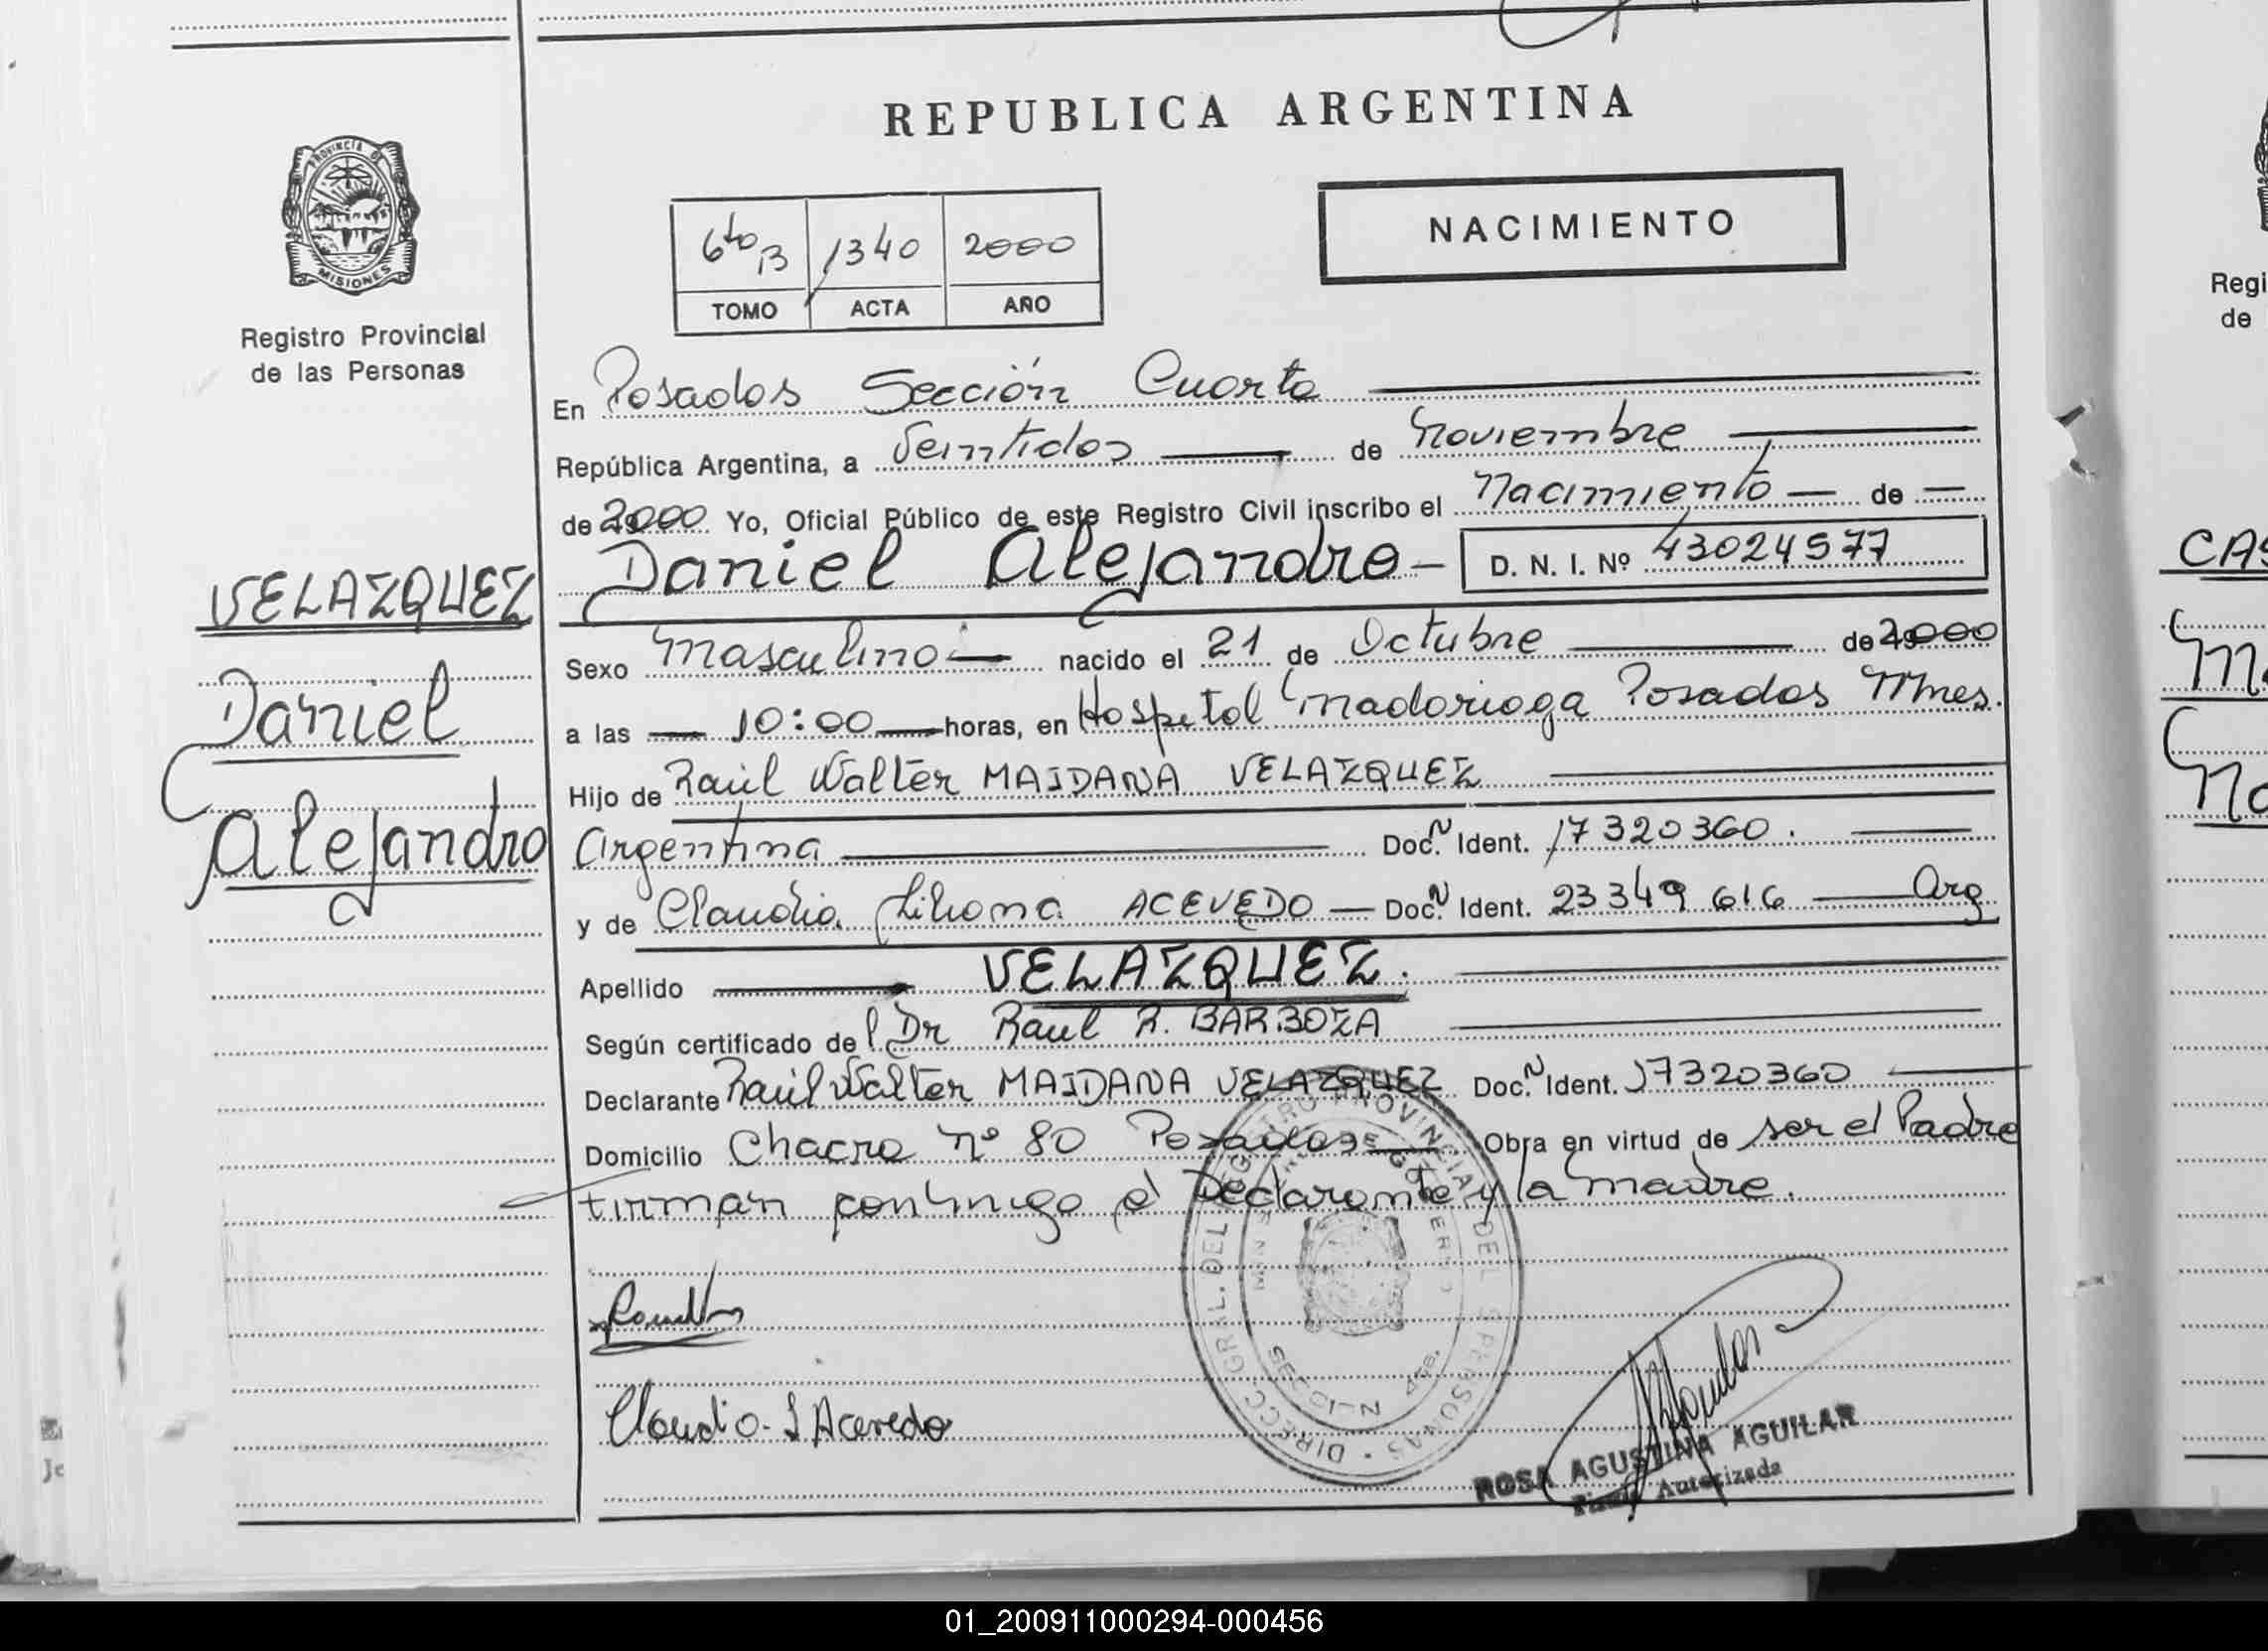 REPUBLICA ARGENTINA
PROVINCIA DE
MISIONES
Registro Provincial
de las Personas
NACIMIENTO
6to B 1340 2000
TOMO ACTA AÑO
En Posadas Sección Cuarta
República Argentina, a Veintidos de Noviembre
de 2000 Yo, Oficial Público de este Registro Civil inscribo el Nacimiento de
Daniel Alejandro D. N. I. Nº 43024577
VELAZQUEZ
Daniel
Alejandro
Sexo Masculino nacido el 21 de Octubre de 2000
a las 10:00 horas, en Hospital Madariaga Posadas Mnes.
Hijo de Raúl Walter MAIDANA VELAZQUEZ
Argentina Doc. N Ident. 17320360.
y de Claudia Liliana ACEVEDO Doc. N Ident. 23349616 Arg
Apellido VELAZQUEZ.
Según certificado del Dr Raul R. BARBOZA
Declarante Raúl Walter MAIDANA VELAZQUEZ Doc. N Ident. 17320360
Domicilio Chacra Nº 80 Posadas Obra en virtud de ser el Padre
firman conmigo el Declarante y la madre.
DIRECC. GRAL. DEL REGISTRO PROVINCIAL DE LAS PERSONAS
MINISTERIO DE GOBIERNO
Claudia L Acevedo
ROSA AGUSTINA AGUILAR
Firma Autorizada
Regi
de
CAS
01_200911000294-000456